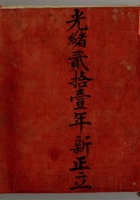 光緒貳拾壹年新正立